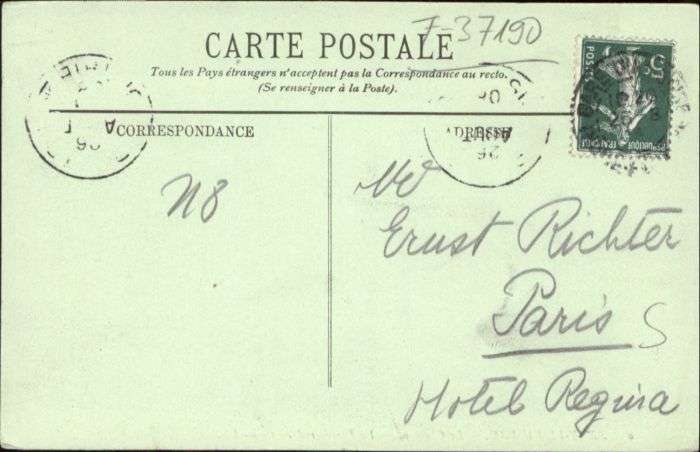 F-37190
CARTE POSTALE
Tous les Pays étrangers n'acceptent pas la Correspondance au recto.
(Se renseigner à la Poste).
CORRESPONDANCE
ADRESSE
N8
Ernst Richter
Paris
Hotel Regina
5
POSTES
REPUBLIQUE FRANÇAISE